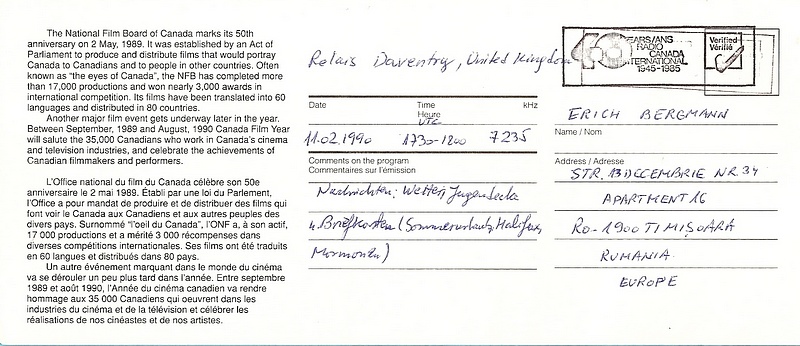 The National Film Board of Canada marks its 50th
anniversary on 2 May, 1989. It was established by an Act of
Parliament to produce and distribute films that would portray
Canada to Canadians and to people in other countries. Often
known as “the eyes of Canada”, the NFB has completed more
than 17,000 productions and won nearly 3,000 awards in
international competition. Its films have been translated into 60
languages and distributed in 80 countries.
Another major film event gets underway later in the year.
Between September, 1989 and August, 1990 Canada Film Year
will salute the 35,000 Canadians who work in Canada's cinema
and television industries, and celebrate the achievements of
Canadian filmmakers and performers.
L'Office national du film du Canada célèbre son 50e
anniversaire le 2 mai 1989. Établi par une loi du Parlement,
l'Office a pour mandat de produire et de distribuer des films qui
font voir le Canada aux Canadiens et aux autres peuples des
divers pays. Surnommé “l'oeil du Canada”, l'ONF a, à son actif,
17 000 productions et a mérité 3 000 récompenses dans
diverses compétitions internationales. Ses films ont été traduits
en 60 langues et distribués dans 80 pays.
Un autre événement marquant dans le monde du cinéma
va se dérouler un peu plus tard dans l'année. Entre septembre
1989 et août 1990, l'Année du cinéma canadien va rendre
hommage aux 35 000 Canadiens qui oeuvrent dans les
industries du cinéma et de la télévision et célébrer les
réalisations de nos cinéastes et de nos artistes.
Relais Daventry, United Kingdom
Date Time Heure kHz
UTC
11.02.1990 1730-1800 7235
Comments on the program
Commentaires sur l'émission
Nachrichten; Wetter; Jugendecke
u. Briefkasten (Sommeruhrzeit, Halifax,
Mormonen)
40 YEARS/ANS
RADIO
CANADA
INTERNATIONAL
1945-1985
Verified
Vérifié
ERICH BERGMANN
Name / Nom
Address / Adresse
STR. 13 DECEMBRIE NR. 34
APARTMENT 16
RO-1900 TIMIȘOARA
RUMANIA
EUROPE